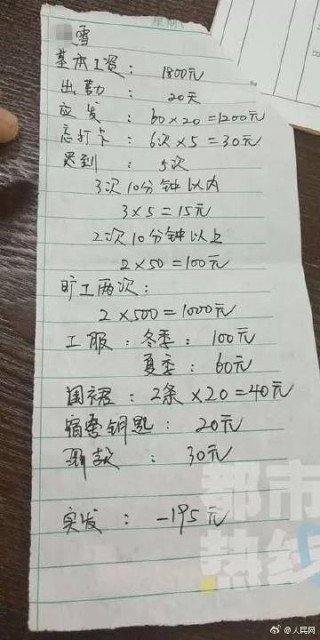 雪
基本工资：1800元
出勤：20天
应发：60×20=1200元
忘打卡：6次×5=30元
迟到：5次
3次10分钟以内
3×5=15元
2次10分钟以上
2×50=100元
旷工两次：
2×500=1000元
工服：冬季：100元
夏季：60元
围裙：2条×20=40元
宿舍钥匙：20元
罚款：30元
实发：-195元
都市
热线
@人民网